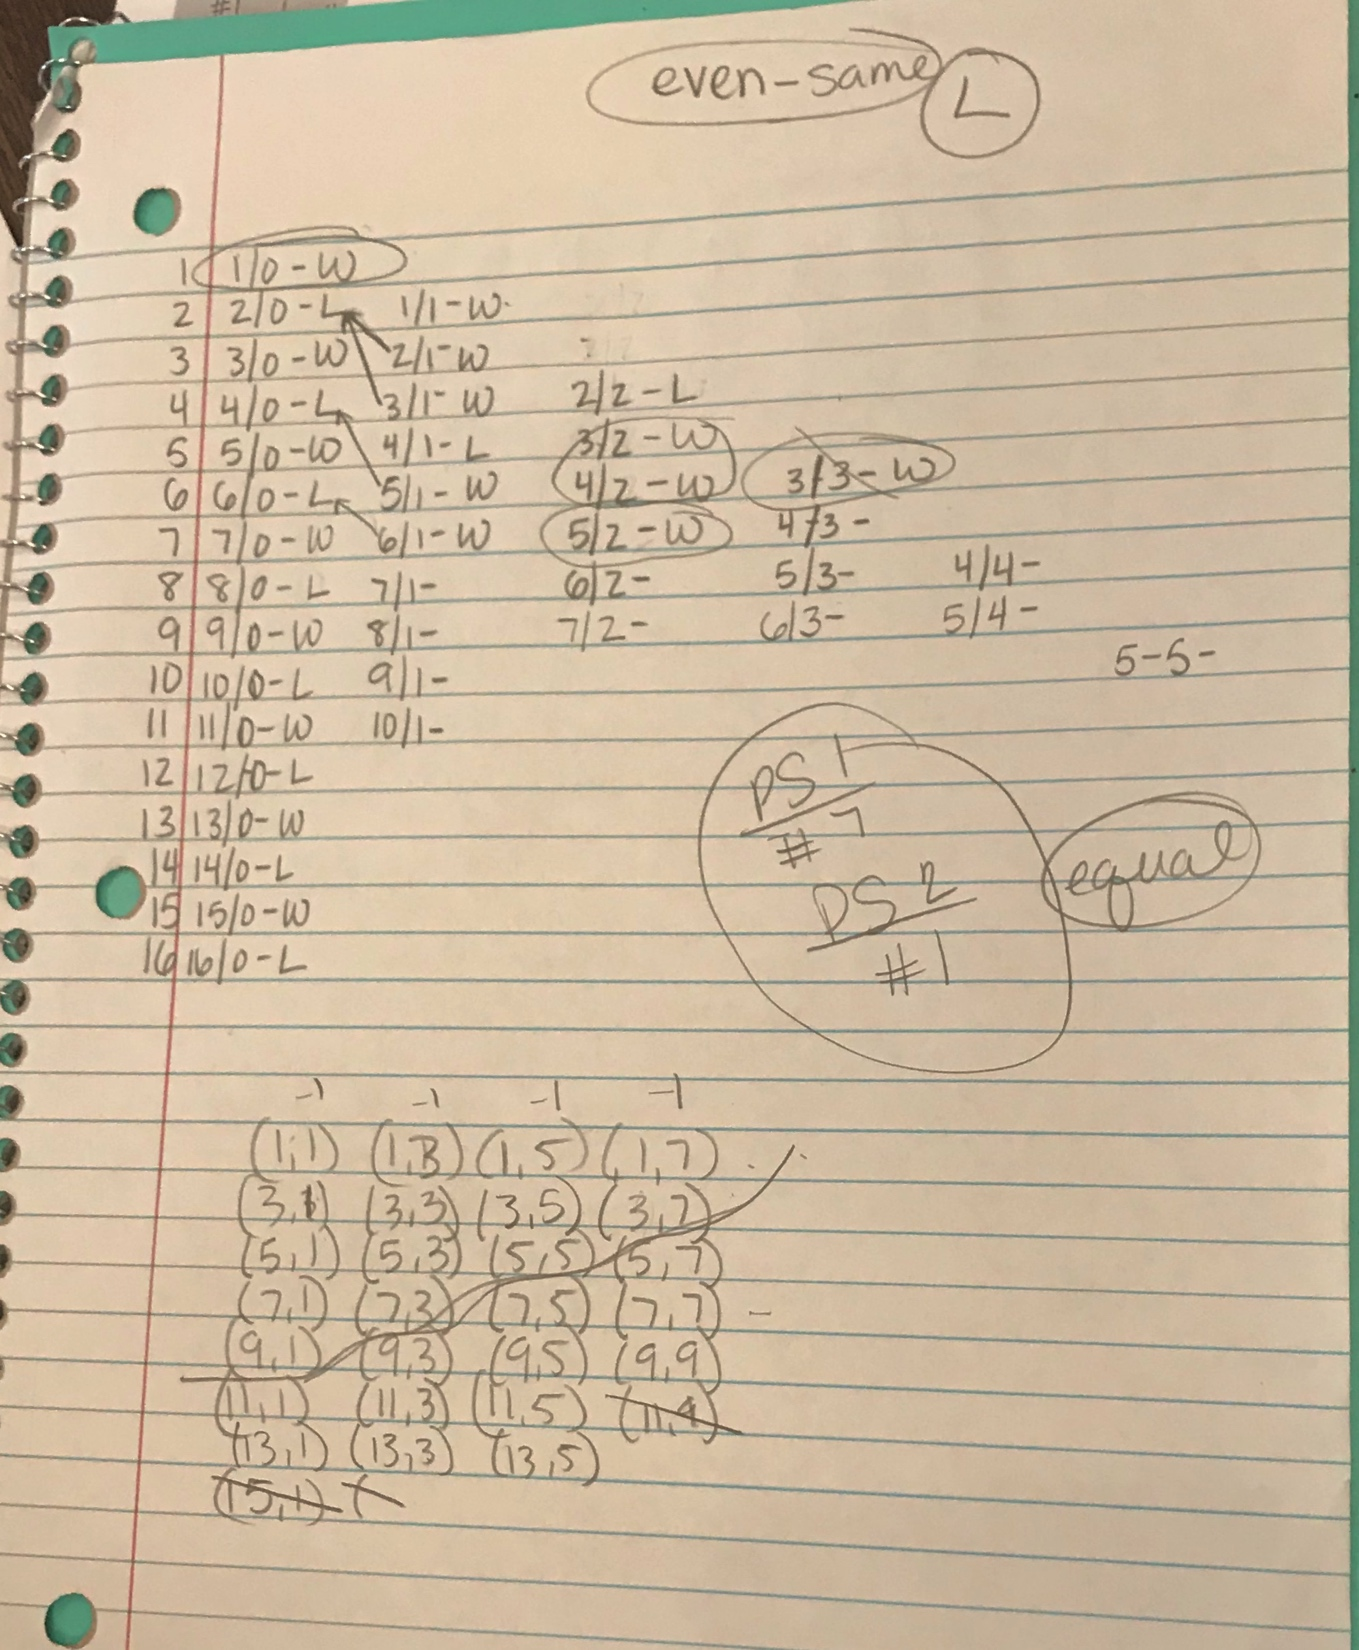 even-same L
1 1/0-W
2 2/0-L 1/1-W
3 3/0-W 2/1-W
4 4/0-L 3/1-W 2/2-L
5 5/0-W 4/1-L 3/2-W
6 6/0-L 5/1-W 4/2-W 3/3-W
7 7/0-W 6/1-W 5/2-W 4/3-
8 8/0-L 7/1- 6/2- 5/3- 4/4-
9 9/0-W 8/1- 7/2- 6/3- 5/4-
5-5-
10 10/0-L 9/1-
11 11/0-W 10/1-
12 12/0-L
13 13/0-W
14 14/0-L
15 15/0-W
16 16/0-L
PS 1
#7
PS 2
#1
equal
-1 -1 -1 -1
(1,1) (1,3) (1,5) (1,7)
(3,1) (3,3) (3,5) (3,7)
(5,1) (5,3) (5,5) (5,7)
(7,1) (7,3) (7,5) (7,7) -
(9,1) (9,3) (9,5) (9,9)
(11,1) (11,3) (11,5) (11,9)
(13,1) (13,3) (13,5)
(15,1) (